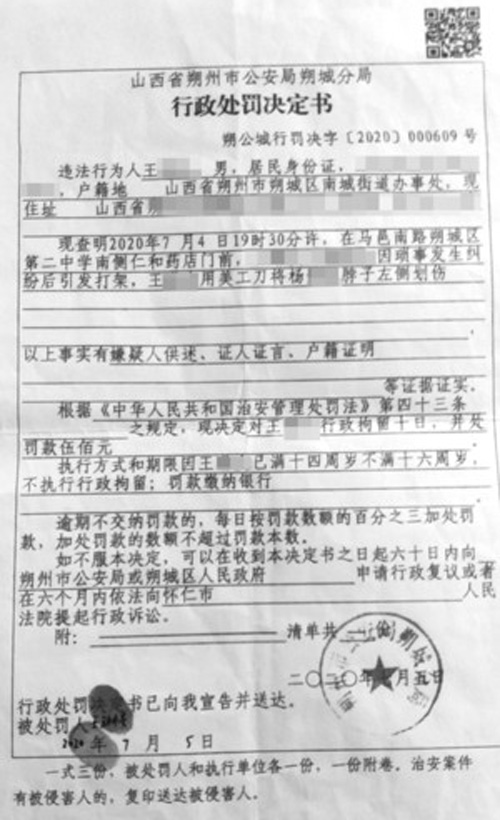 山西省朔州市公安局朔城分局
行政处罚决定书
朔公城行罚决字〔2020〕000609 号
违法行为人王 男，居民身份证，
，户籍地 山西省朔州市朔城区南城街道办事处，现
住址 山西省朔
现查明2020年7月4日19时30分许，在马邑南路朔城区
第二中学南侧仁和药店门前， 因琐事发生纠
纷后引发打架，王 用美工刀将杨 脖子左侧划伤
以上事实有嫌疑人供述、证人证言、户籍证明
等证据证实。
根据《中华人民共和国治安管理处罚法》第四十三条
之规定，现决定对王 行政拘留十日，并处
罚款伍佰元
执行方式和期限因王 已满十四周岁不满十六周岁，
不执行行政拘留；罚款缴纳银行
逾期不交纳罚款的，每日按罚款数额的百分之三加处罚
款，加处罚款的数额不超过罚款本数。
如不服本决定，可以在收到本决定书之日起六十日内向
朔州市公安局或朔城区人民政府 申请行政复议或者
在六个月内依法向怀仁市 人民
法院提起行政诉讼。
附： 清单共 份
二〇二〇年七月五日
行政处罚决定书已向我宣告并送达。
被处罚人
2020 年 7 月 5 日
一式三份，被处罚人和执行单位各一份，一份附卷。治安案件
有被侵害人的，复印送达被侵害人。